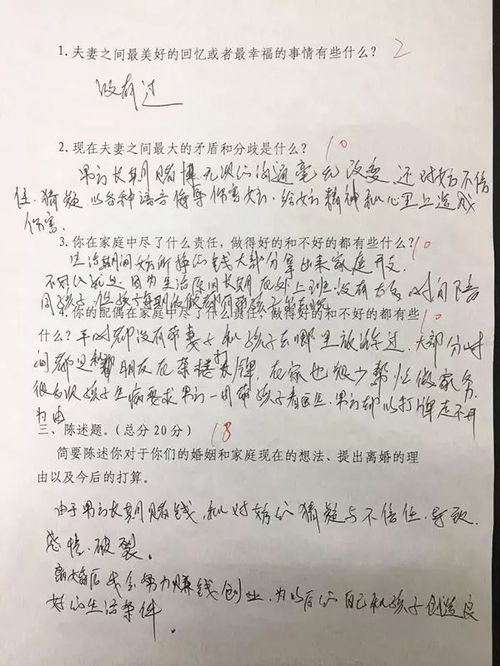 1.夫妻之间最美好的回忆或者最幸福的事情有些什么？ 2
没有过
2.现在夫妻之间最大的矛盾和分歧是什么？ 10
男方长期赌博 无况的沟通毫无改变。还对女方不信
任、猜疑 以各种语言侮辱伤害女方，给女方精神和心里上造成
伤害。
3.你在家庭中尽了什么责任，做得好的和不好的都有些什么？ 10
生活期间女方所挣的钱大部分拿出来家庭开支。
因为生活原因长期在外上班没有太多时间陪
4.你的配偶在家庭中尽了什么责任，做得好的和不好的都有些 10
什么？平时都没有带妻子和孩子去哪里放松过，大部分时
间都是和朋友在茶楼打牌，在家也很少帮忙做家务
孩子生病要求男方一同带孩子看医生，男方却以打牌走不开
为由
三、陈述题。（总分20分） 18
简要陈述你对于你们的婚姻和家庭现在的想法、提出离婚的理
由以及今后的打算。
由于男方长期赌钱，和对女方的猜疑与不信任，导致
感情破裂。
离婚后我会努力赚钱创业，为以后的自己和孩子创造良
好的生活条件。